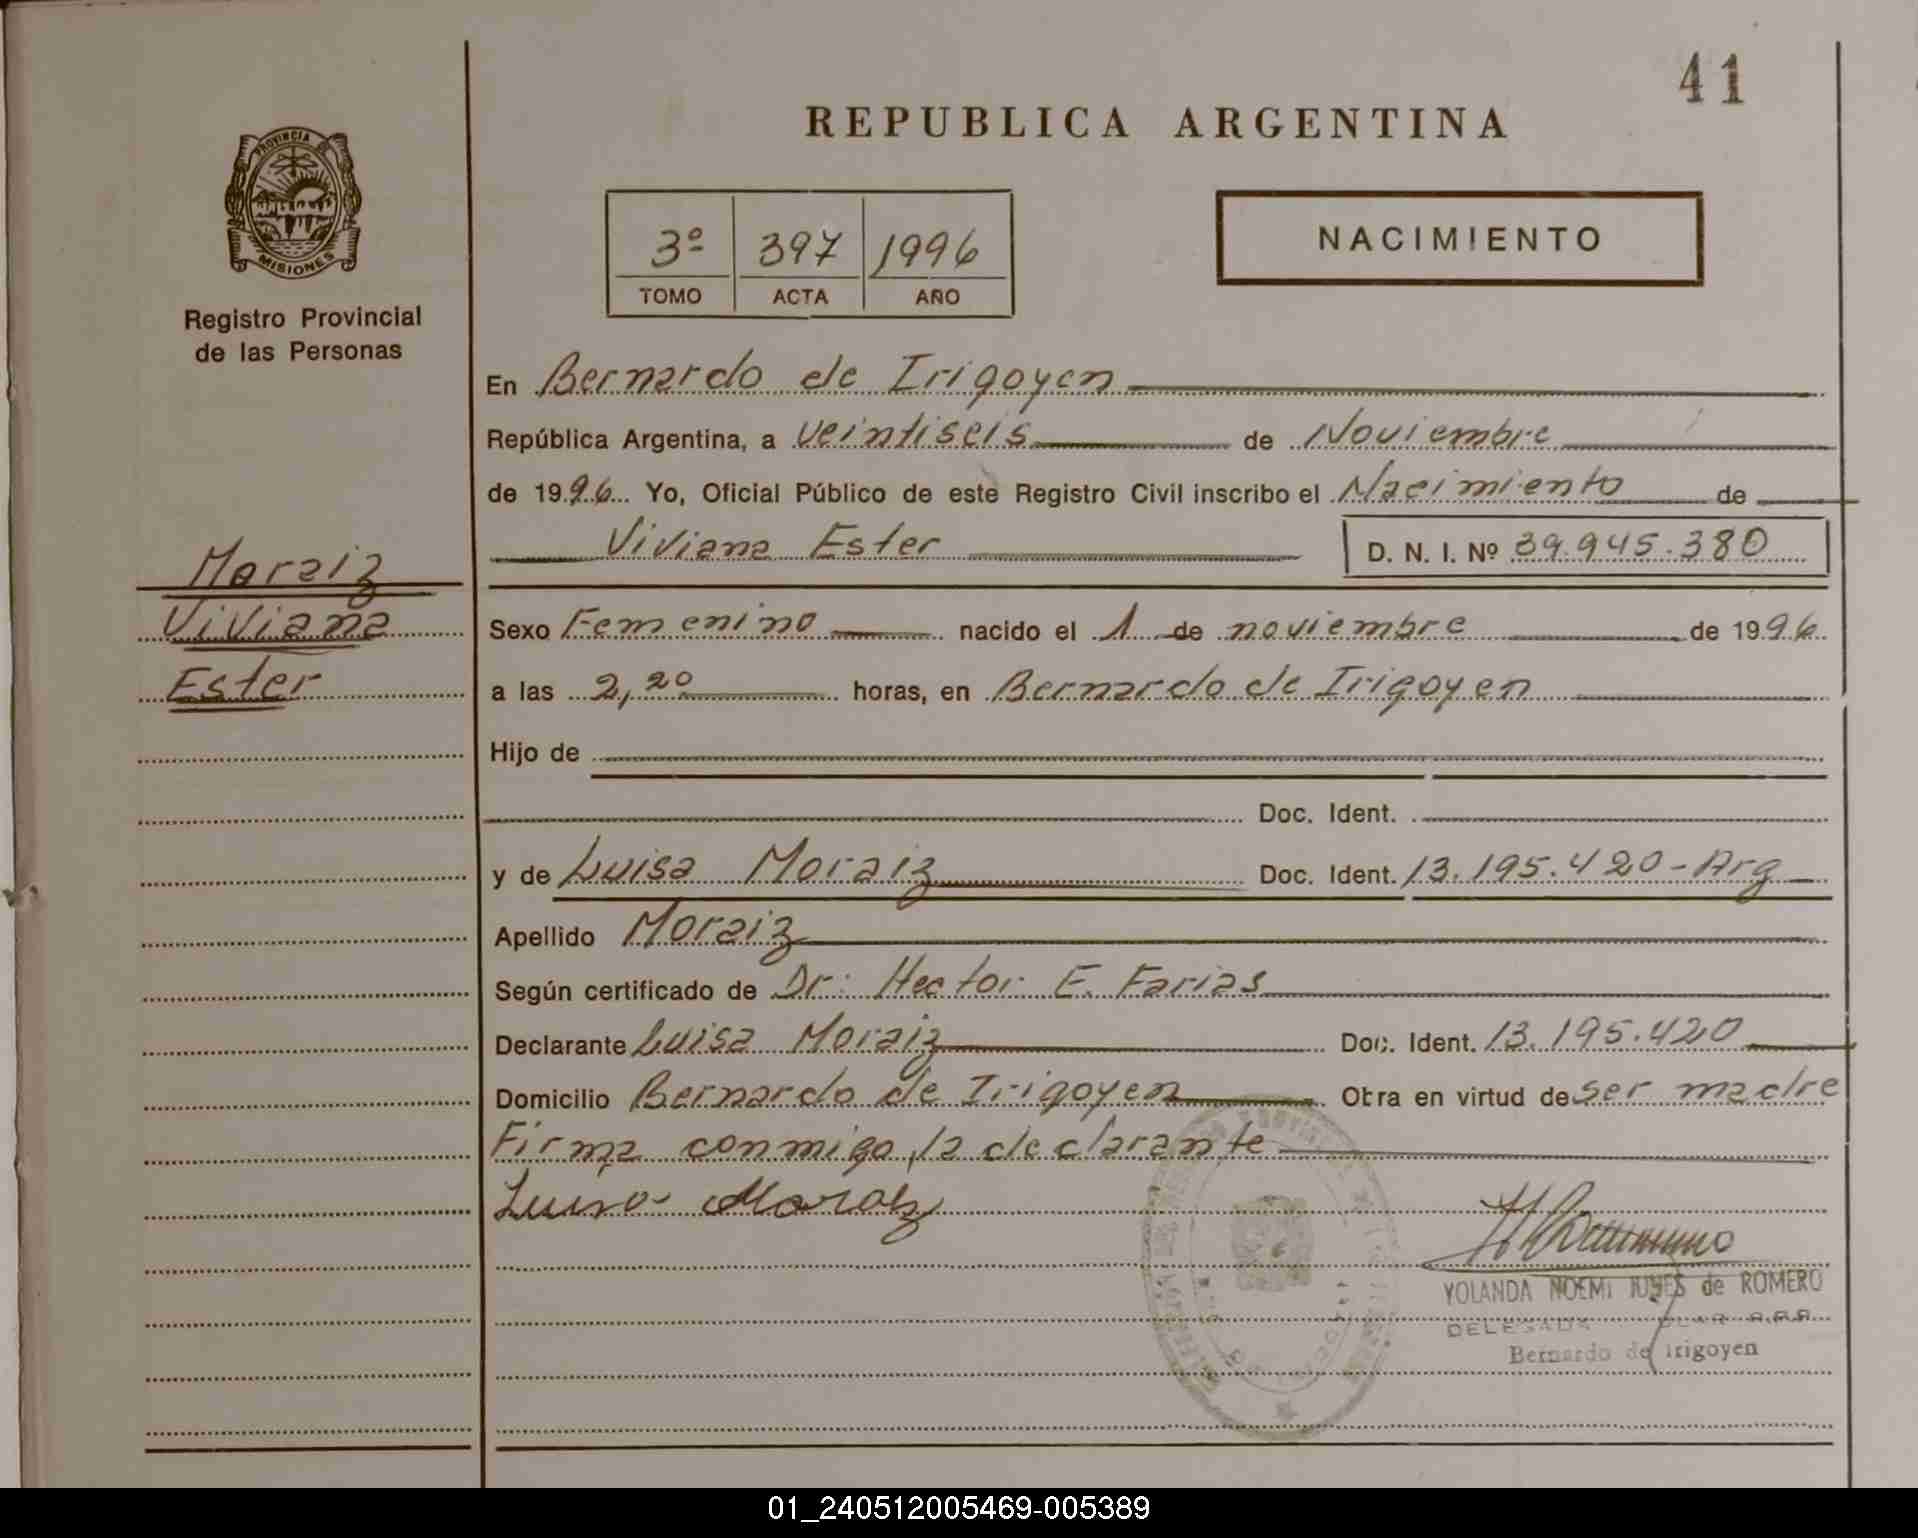 41
REPUBLICA ARGENTINA
PROVINCIA DE
MISIONES
Registro Provincial
de las Personas
3º 397 1996
TOMO ACTA AÑO
NACIMIENTO
En Bernardo de Irigoyen
República Argentina, a veintiseis de Noviembre
de 1996 Yo, Oficial Público de este Registro Civil inscribo el Nacimiento de
Viviana Ester D. N. I. Nº 39.945.380
Moraiz
Viviana
Ester
Sexo Femenino nacido el 1 de noviembre de 1996
a las 2,20 horas, en Bernardo de Irigoyen
Hijo de
Doc. Ident.
y de Luisa Moraiz Doc. Ident. 13.195.420-Arg
Apellido Moraiz
Según certificado de Dr: Hector E. Farias
Declarante Luisa Moraiz Doc. Ident. 13.195.420
Domicilio Bernardo de Irigoyen Obra en virtud de ser madre
Firma conmigo, la declarante
Luisa Moraiz
YOLANDA NOEMI de ROMERO
DELEGADA
Bernardo de Irigoyen
01_240512005469-005389